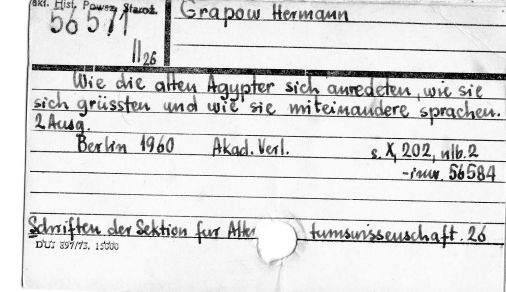 Zakł. Hist. Powsz. Staroż.
56571
II 26
Grapow Hermann
Wie die alten Ägypter sich anredeten, wie sie
sich grüssten und wie sie miteinandere sprachen.
2 Ausg.
Berlin 1960 Akad. Verl. s. X, 202, nlb. 2
-inw. 56584
Schriften der Sektion fur Alter tumswissenschaft. 26
DUJ 897/73. 15000